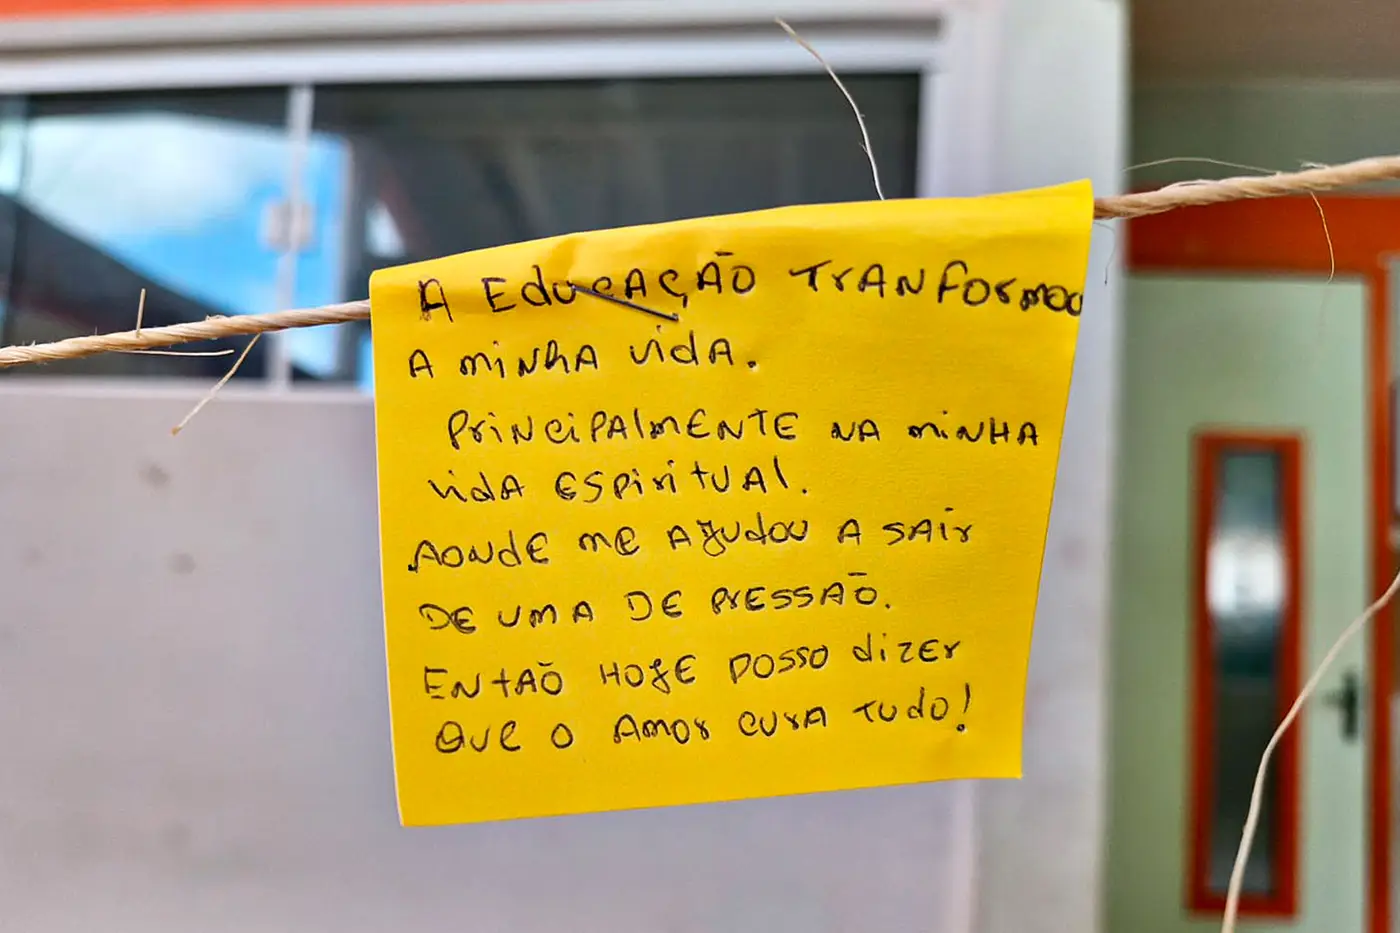 A EDUCAÇÃO TRANSFORMOU
A MINHA VIDA.
PRINCIPALMENTE NA MINHA
VIDA ESPIRITUAL.
AONDE ME AJUDOU A SAIR
DE UMA DE PRESSÃO.
ENTÃO HOJE POSSO DIZER
QUE O AMOR CURA TUDO!